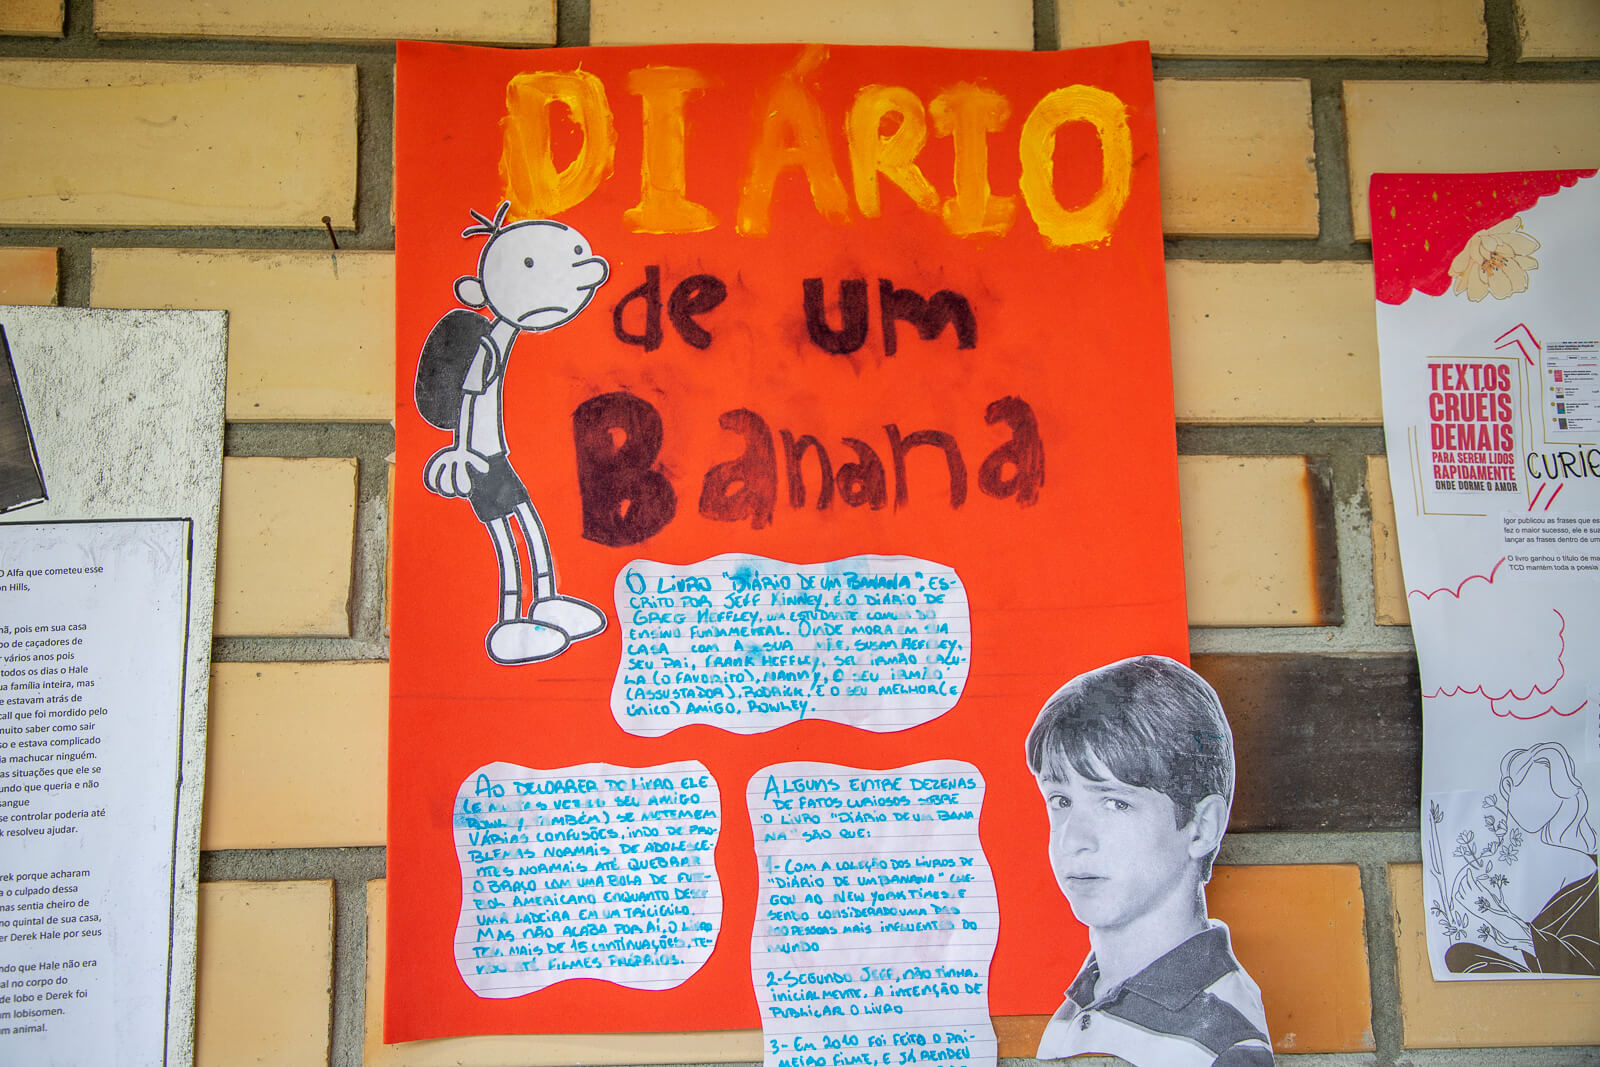 DIÁRIO
de um
Banana
O LIVRO "DIÁRIO DE UM BANANA", ES-
CRITO POR JEFF KINNEY, É O DIÁRIO DE
GREG HEFFLEY, UM ESTUDANTE COMUM DO
ENSINO FUNDAMENTAL. ONDE MORA EM SUA
CASA COM A SUA MÃE, SUSAN HEFFLEY,
SEU PAI, FRANK HEFFLEY, SEU IRMÃO CAÇU-
LA (O FAVORITO), MANNY, E SEU IRMÃO
(ASSUSTADOR), RODRICK. E O SEU MELHOR (E
ÚNICO) AMIGO, ROWLEY.
AO DECORRER DO LIVRO ELE
(E MUITAS VEZES O SEU AMIGO
ROWLEY TAMBÉM) SE METEM EM
VÁRIAS CONFUSÕES, INDO DE PRO-
BLEMAS NORMAIS DE ADOLESCE-
NTES NORMAIS ATÉ QUEBRAR
O BRAÇO COM UMA BOLA DE FUTE-
BOL AMERICANO ENQUANTO DESCE
UMA LADEIRA EM UM TRICICULO.
MAS NÃO ACABA POR AÍ, O LIVRO
TEM MAIS DE 15 CONTINUAÇÕES, TE-
VE ATÉ FILMES PRÓPRIOS.
ALGUNS ENTRE DEZENAS
DE FATOS CURIOSOS SOBRE
O LIVRO "DIÁRIO DE UM BANA
NA" SÃO QUE:
1- COM A COLEÇÃO DOS LIVROS DE
"DIÁRIO DE UM BANANA" CHE-
GOU AO NEW YORK TIMES, E
SENDO CONSIDERADO UMA DAS
100 PESSOAS MAIS INFLUENTES DO
MUNDO
2- SEGUNDO JEFF, NÃO TINHA,
INICIALMENTE, A INTENÇÃO DE
PUBLICAR O LIVRO
3- EM 2010 FOI FEITO O PRI-
MEIRO FILME, E JÁ RENDEU
O Alfa que cometeu esse
on Hills,
ã, pois em sua casa
po de caçadores de
r vários anos pois
todos os dias o Hale
ua família inteira, mas
e estavam atrás de
call que foi mordido pelo
muito saber como sair
so e estava complicado
ia machucar ninguém.
as situações que ele se
undo que queria e não
sangue
se controlar poderia até
k resolveu ajudar.
rek porque acharam
a o culpado dessa
nas sentia cheiro de
no quintal de sua casa,
er Derek Hale por seus
ndo que Hale não era
al no corpo do
de lobo e Derek foi
um lobisomen.
m animal.
TEXTOS
CRUÉIS
DEMAIS
PARA SEREM LIDOS
RAPIDAMENTE
ONDE DORME O AMOR
CURIO
Igor publicou as frases que es
fez o maior sucesso, ele e sua
lançar as frases dentro de um
O livro ganhou o título de ma
TCD mantém toda a poesia